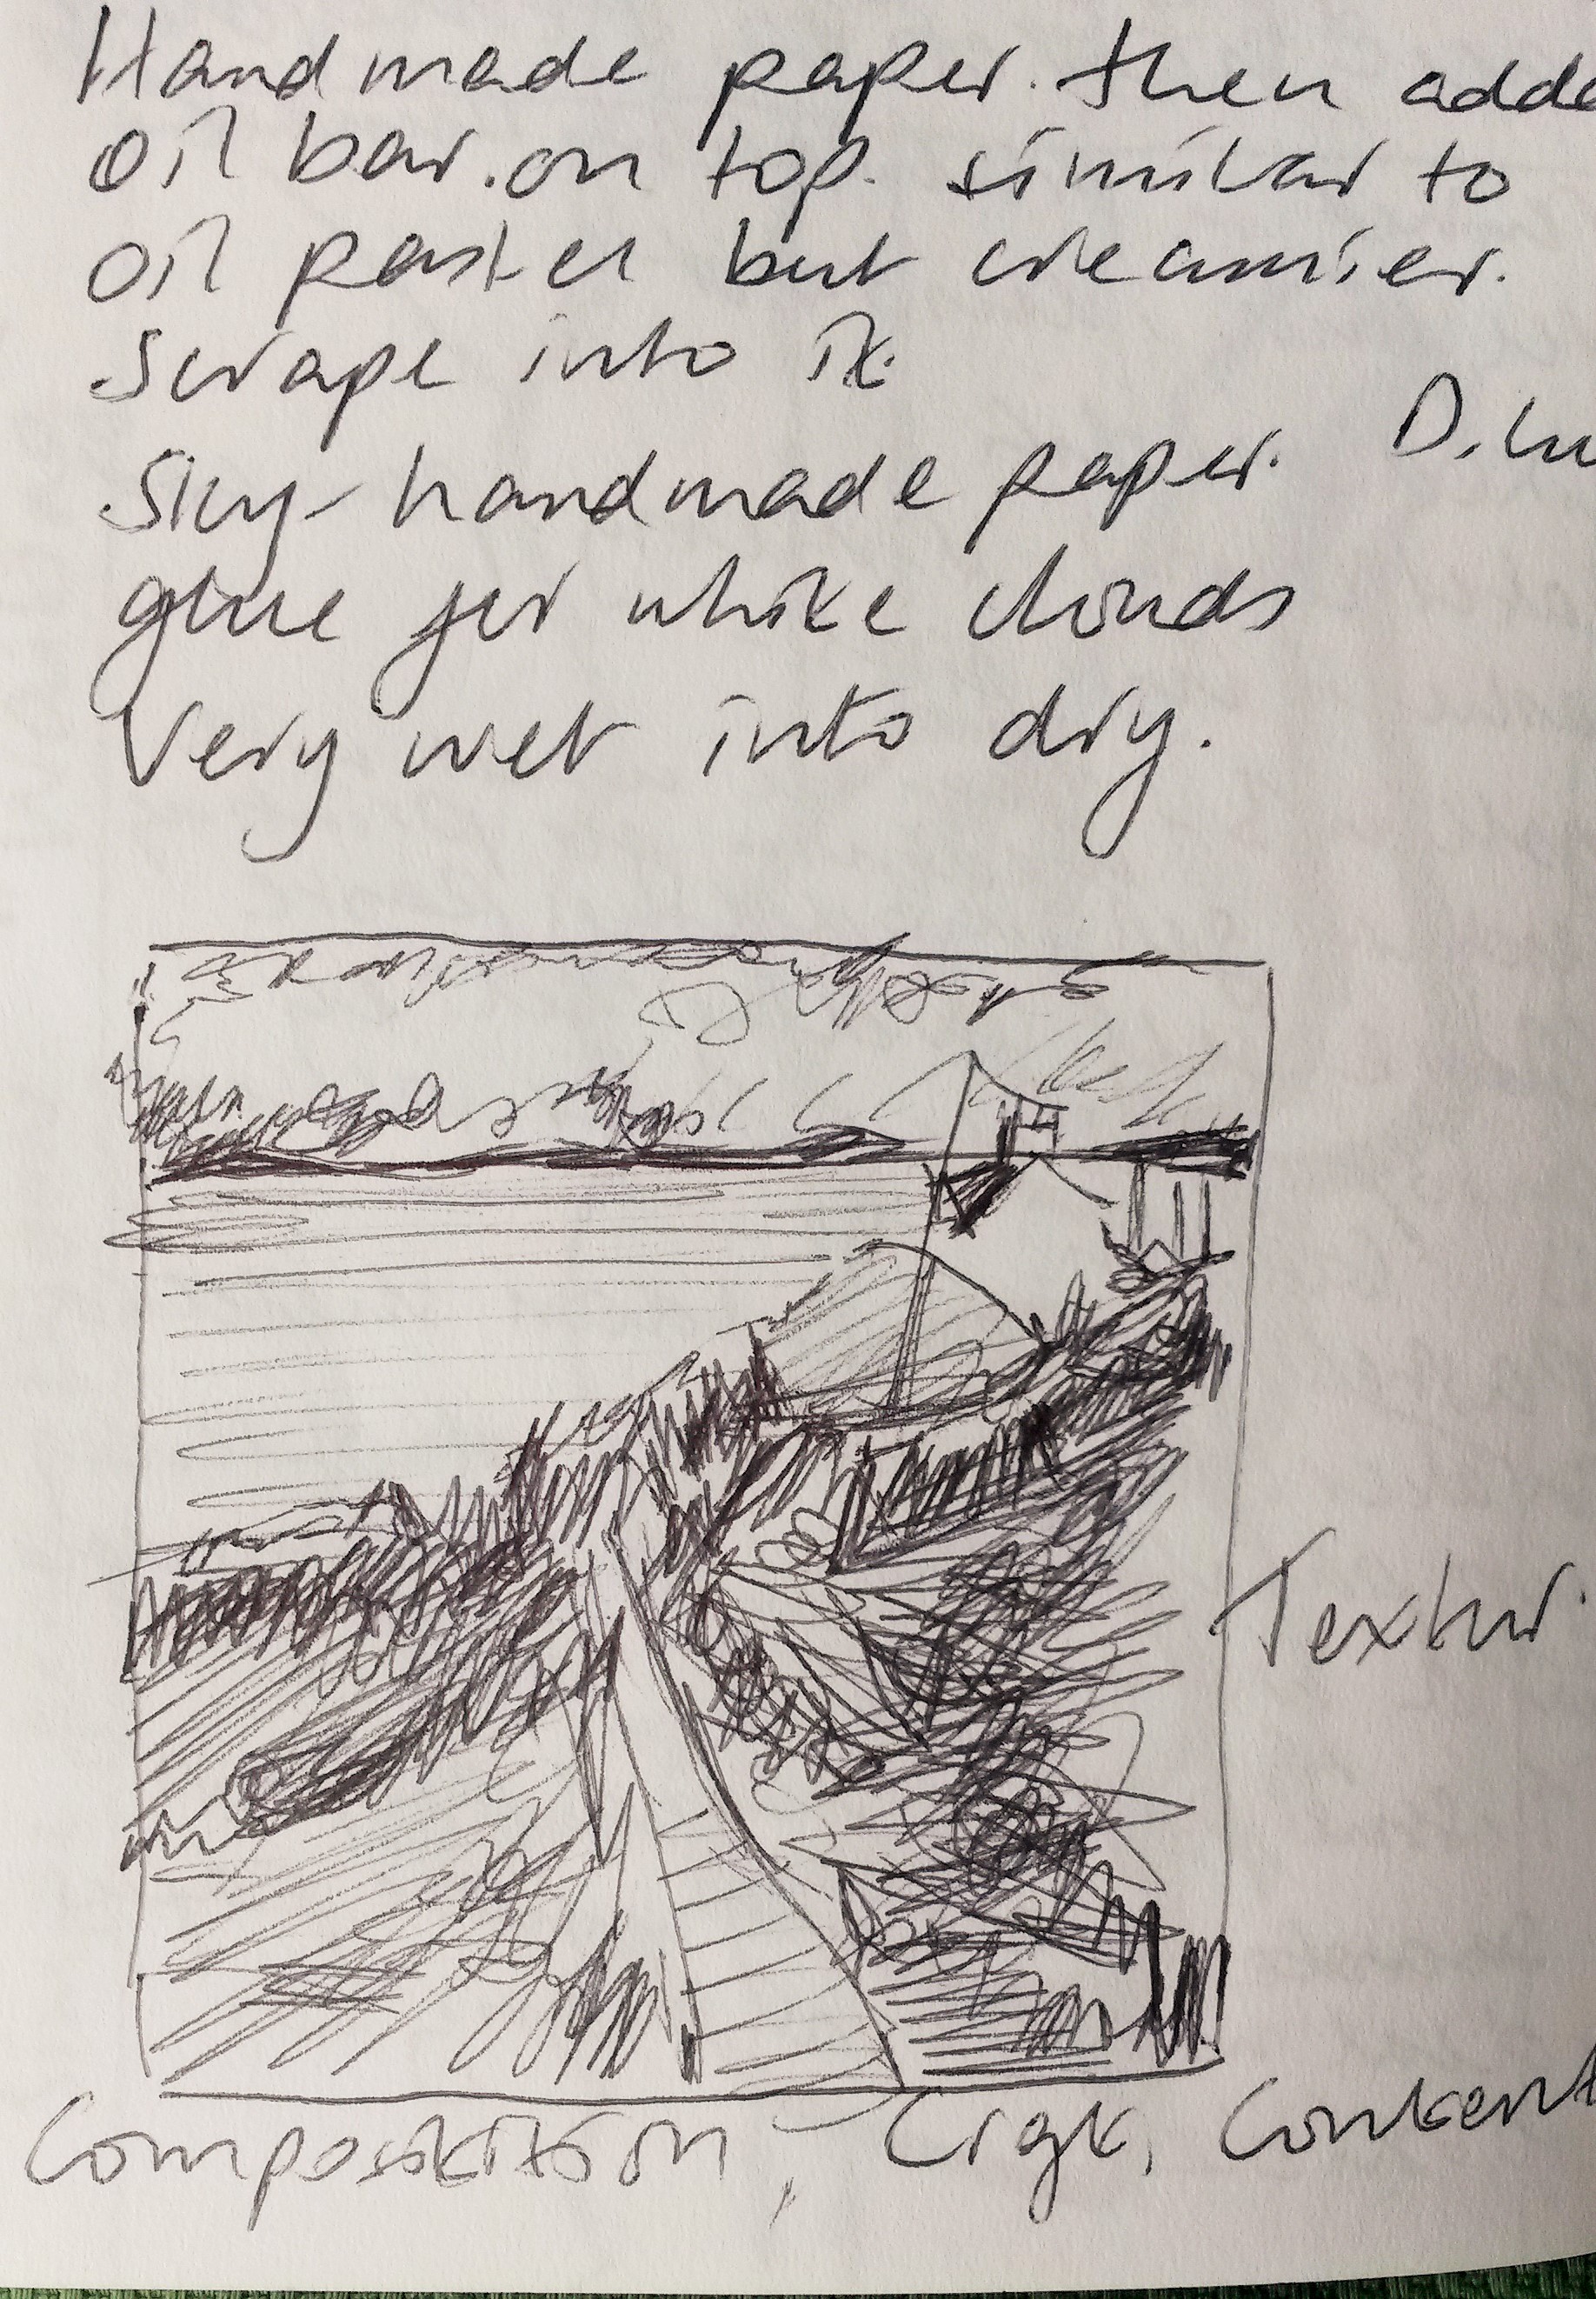 Handmade paper. then adde
oil bar. on top. similar to
oil pastel but creamier.
scrape into it.
D. Lu
Sky - handmade paper.
glue for white clouds
Very wet into dry.
Textur
Composition, Craft, Content